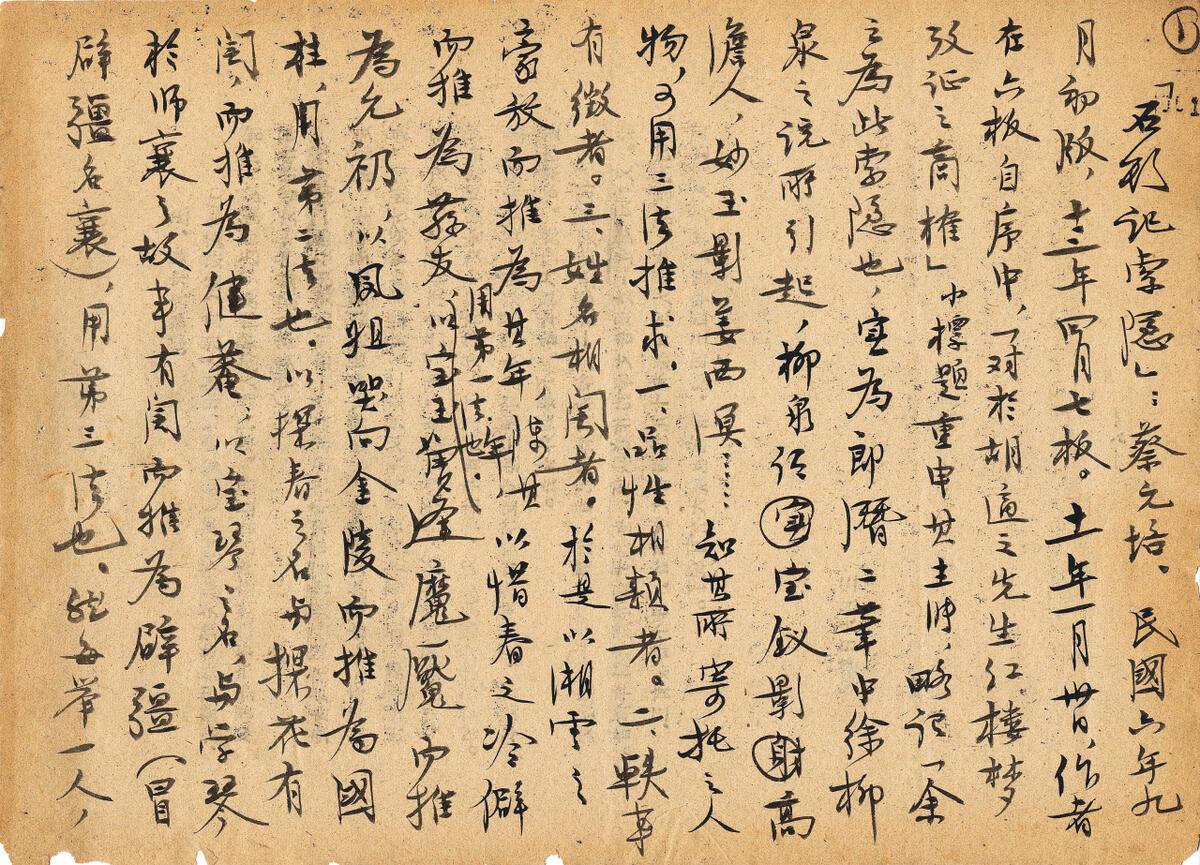 ①
石头记索隐」：蔡元培、民國六年九
月初版，十二年四月七板。十一年一月卅日，作者
在六板自序中，「对於胡適之先生红楼梦
攷证之商榷」小標題重申其主張，略记「余
之為此索隐也，实為郎潛二筆中徐柳
泉之说所引起，柳泉谓宝宝釵影射高
澹人，妙玉影姜西溟……知其所寄托之人
物，可用三法推求。一、品性相類者。二、軼事
有徵者。三、姓名相関者。於是以湘雲之
豪放而推為其年，以惜春之冷僻
而推為蓀友，用第一法也。以宝玉曾逢魔魘而推
為允礽，以凤姐哭向金陵而推為國
柱，用第二法也。以探春之名与探花有
関，而推為健菴，以宝琴之名，与学琴
於师襄之故事有関而推為辟疆（冒
辟疆名襄），用第三法也。然每举一人，